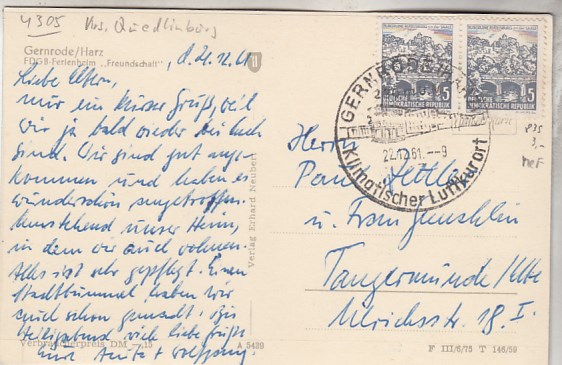 4305 Krs. Quedlinburg
Gernrode/Harz
FDGB-Ferienheim „Freundschaft"
d. 21.12.61
Liebe Eltern,
nur ein kurzer Gruß, weil
wir ja bald wieder bei Euch
sind. Wir sind gut ange-
kommen und haben es
wunderschön angetroffen.
Umstehend unser Heim,
in dem wir auch wohnen.
Alles ist sehr gepflegt. Einen
Stadtbummel haben wir
auch schon gemacht. Bis
Heiligabend viele liebe Grüße
Eure Anita + Wolfgang.
Verbraucherpreis DM –,15
A 5439
Verlag Erhard Neubert
15
DEUTSCHE
DEMOKRATISCHE REPUBLIK
15
DEUTSCHE
DEMOKRATISCHE REPUBLIK
GERNRODE/HARZ
22.12.61.–9
Klimatischer Luftkurort
Herrn
Paul
u. Frau
Tangermünde/Elbe
Ulrichsstr. 18 I.
835
3,-
MeF
F III/6/75 T 146/59